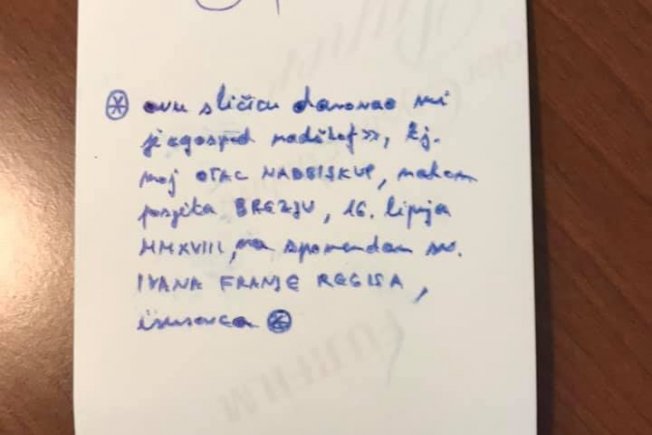 ovu sličicu darovao mi
je «gospod nadškof», tj.
moj OTAC NADBISKUP, nakon
posjeta BREZJU, 16. lipnja
MMXVIII, na spomendan sv.
IVANA FRANJE REGISA,
isusovca